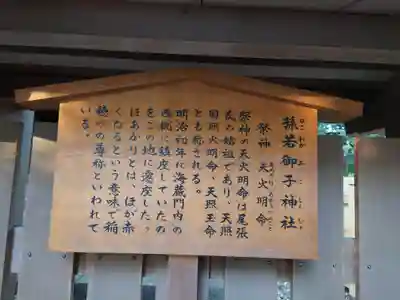 孫若御子神社
ひこわかみこじんじゃ
祭神　天火明命
祭神の天火明命は尾張
氏の始祖であり、天照
国照火明命、天照玉命
とも称される。
明治初年に海蔵門内の
西側に鎮座していたの
をこの地に遷座した。
ほあかりとは、ほが赤
くなるという意味で稲
穂への尊称といわれて
いる。